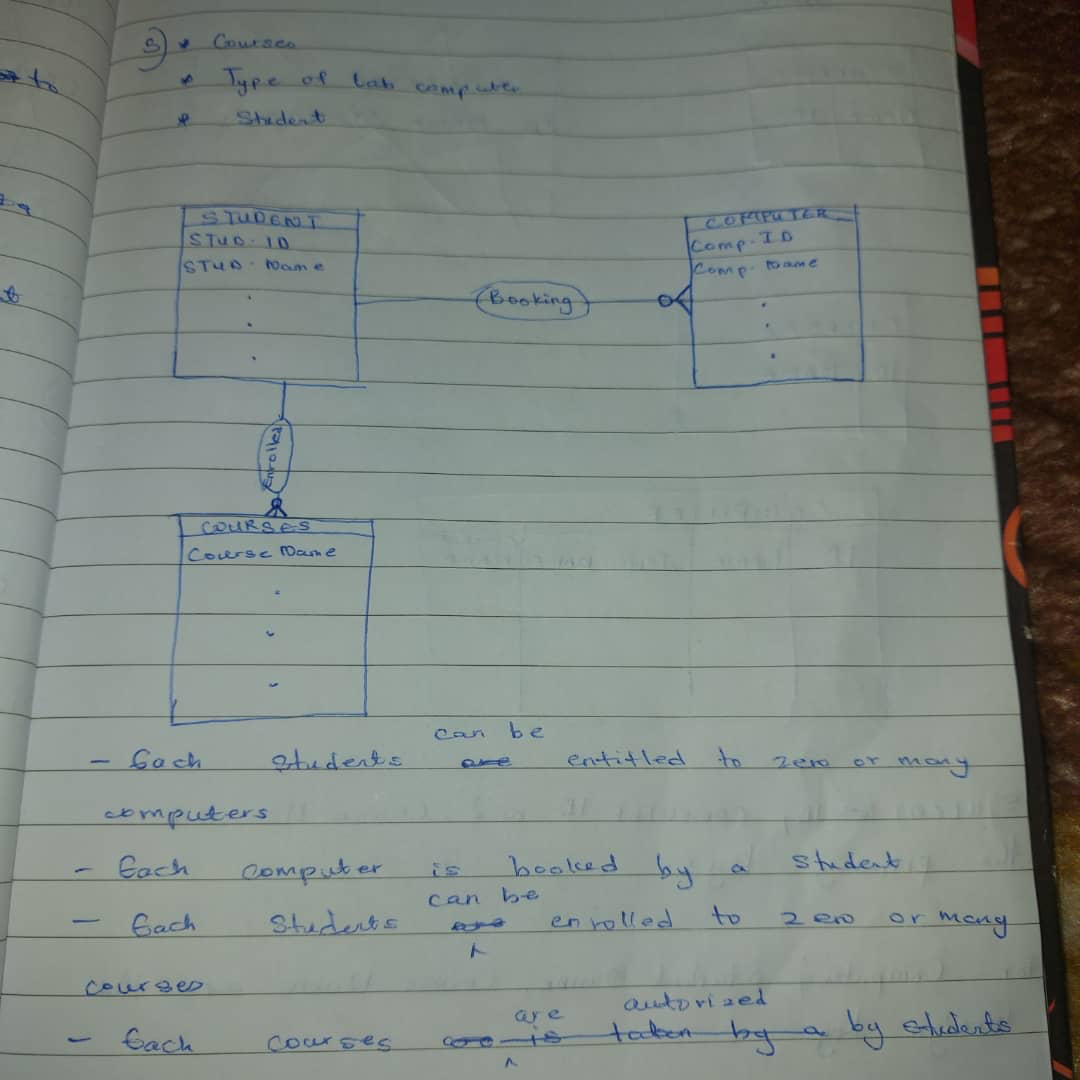 3) * Courses
* Type of lab computer
* Student
to
STUDENT
STUD. ID
STUD. Name
Booking
COMPUTER
Comp. ID
Comp. Name
Enrolled
COURSES
Course Name
can be
- Each Students are entitled to zero or many
computers
- Each computer is booked by a student
can be
- Each Students are enrolled to zero or many
courses
are autorized
- Each courses is taken by a by students